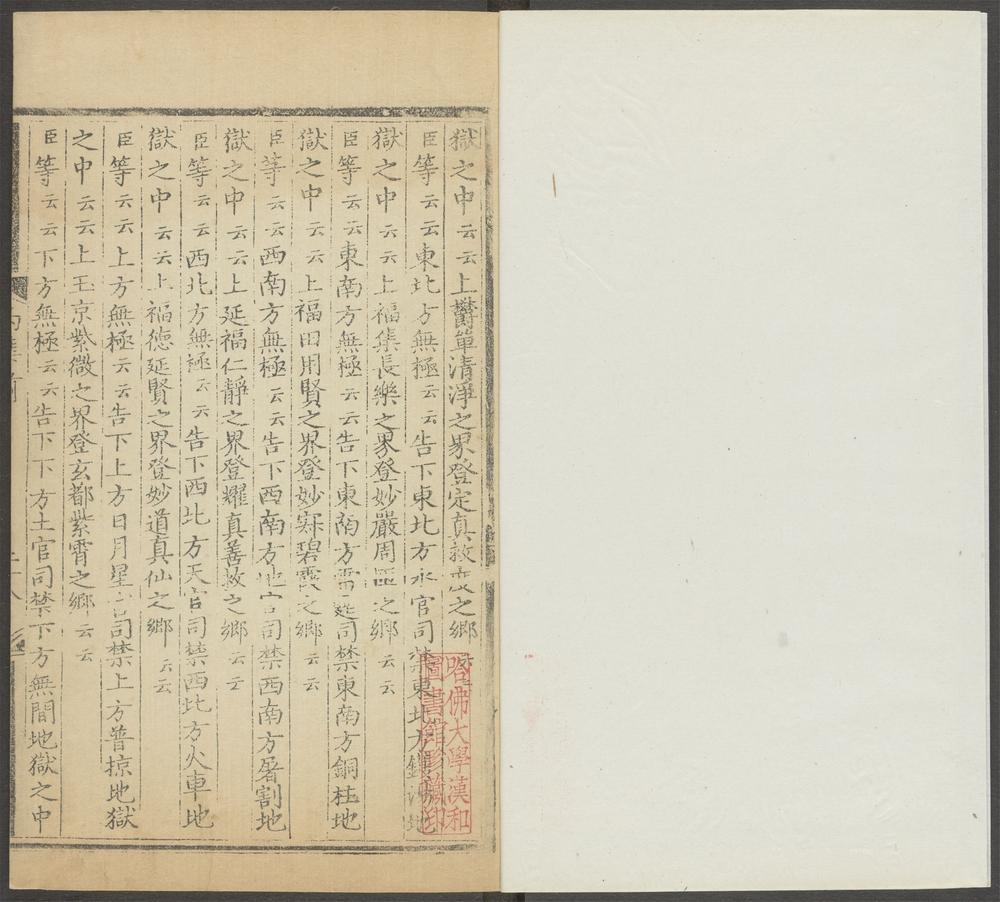 獄之中云云上欝單清淨之界登定真救之鄉云
臣等云云東北方無極云云告下東北方水官司禁東北方鑊湯地
獄之中云云上福集長樂之界登妙嚴周匝之鄉云云
臣等云云東南方無極云云告下東南方雷司禁東南方銅柱地
獄之中云云上福田用賢之界登妙寂碧霞之鄉云云
臣等云云西南方無極云云告下西南方地官司禁西南方屠割地
獄之中云云上延福仁靜之界登耀真善救之鄉云云
臣等云云西北方無極云云告下西北方天官司禁西北方火車地
獄之中云云上福德延賢之界登妙道真仙之鄉云云
臣等云云上方無極云云告下上方日月星官司禁上方普掠地獄
之中云云上玉京紫微之界登玄都紫霄之鄉云云
臣等云云下方無極云云告下下方土官司禁下方無間地獄之中
哈佛大學漢和
圖書館珍藏印